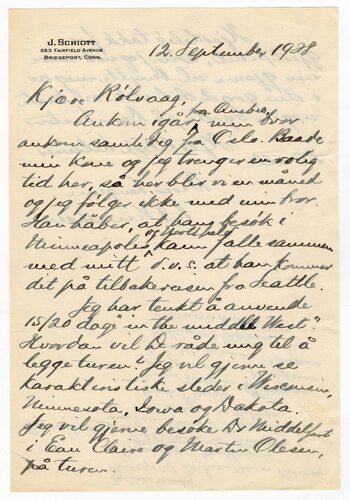 J. SCHIØTT
263 FAIRFIELD AVENUE
BRIDGEPORT, CONN.
12. September 1928
Kjære Rölvaag,
Ankom igår, min bror fra
ankom samtidig fra Oslo. Baade
min kone og jeg trenger en rolig
tid her, så her blir vi en måned
og jeg følger ikke med min bror.
Han håber, at hans besök i
Minneapolis og Northfield kann falle sammen
med mitt d.v.s. at han kommer
dit på tilbakereisen fra Seattle.
Jeg har tenkt å anvende
15/20 dage "in the middle West".
Hvordan vil De råde mig til å
legge turen? Jeg vil gjerne se
karakteristiske steder i Wisconsin,
Minnesota, Iowa og Dakota.
Jeg vil gjerne besöke Dr Middelfart
i Eau Claire og Martin Olesen,
på turen.